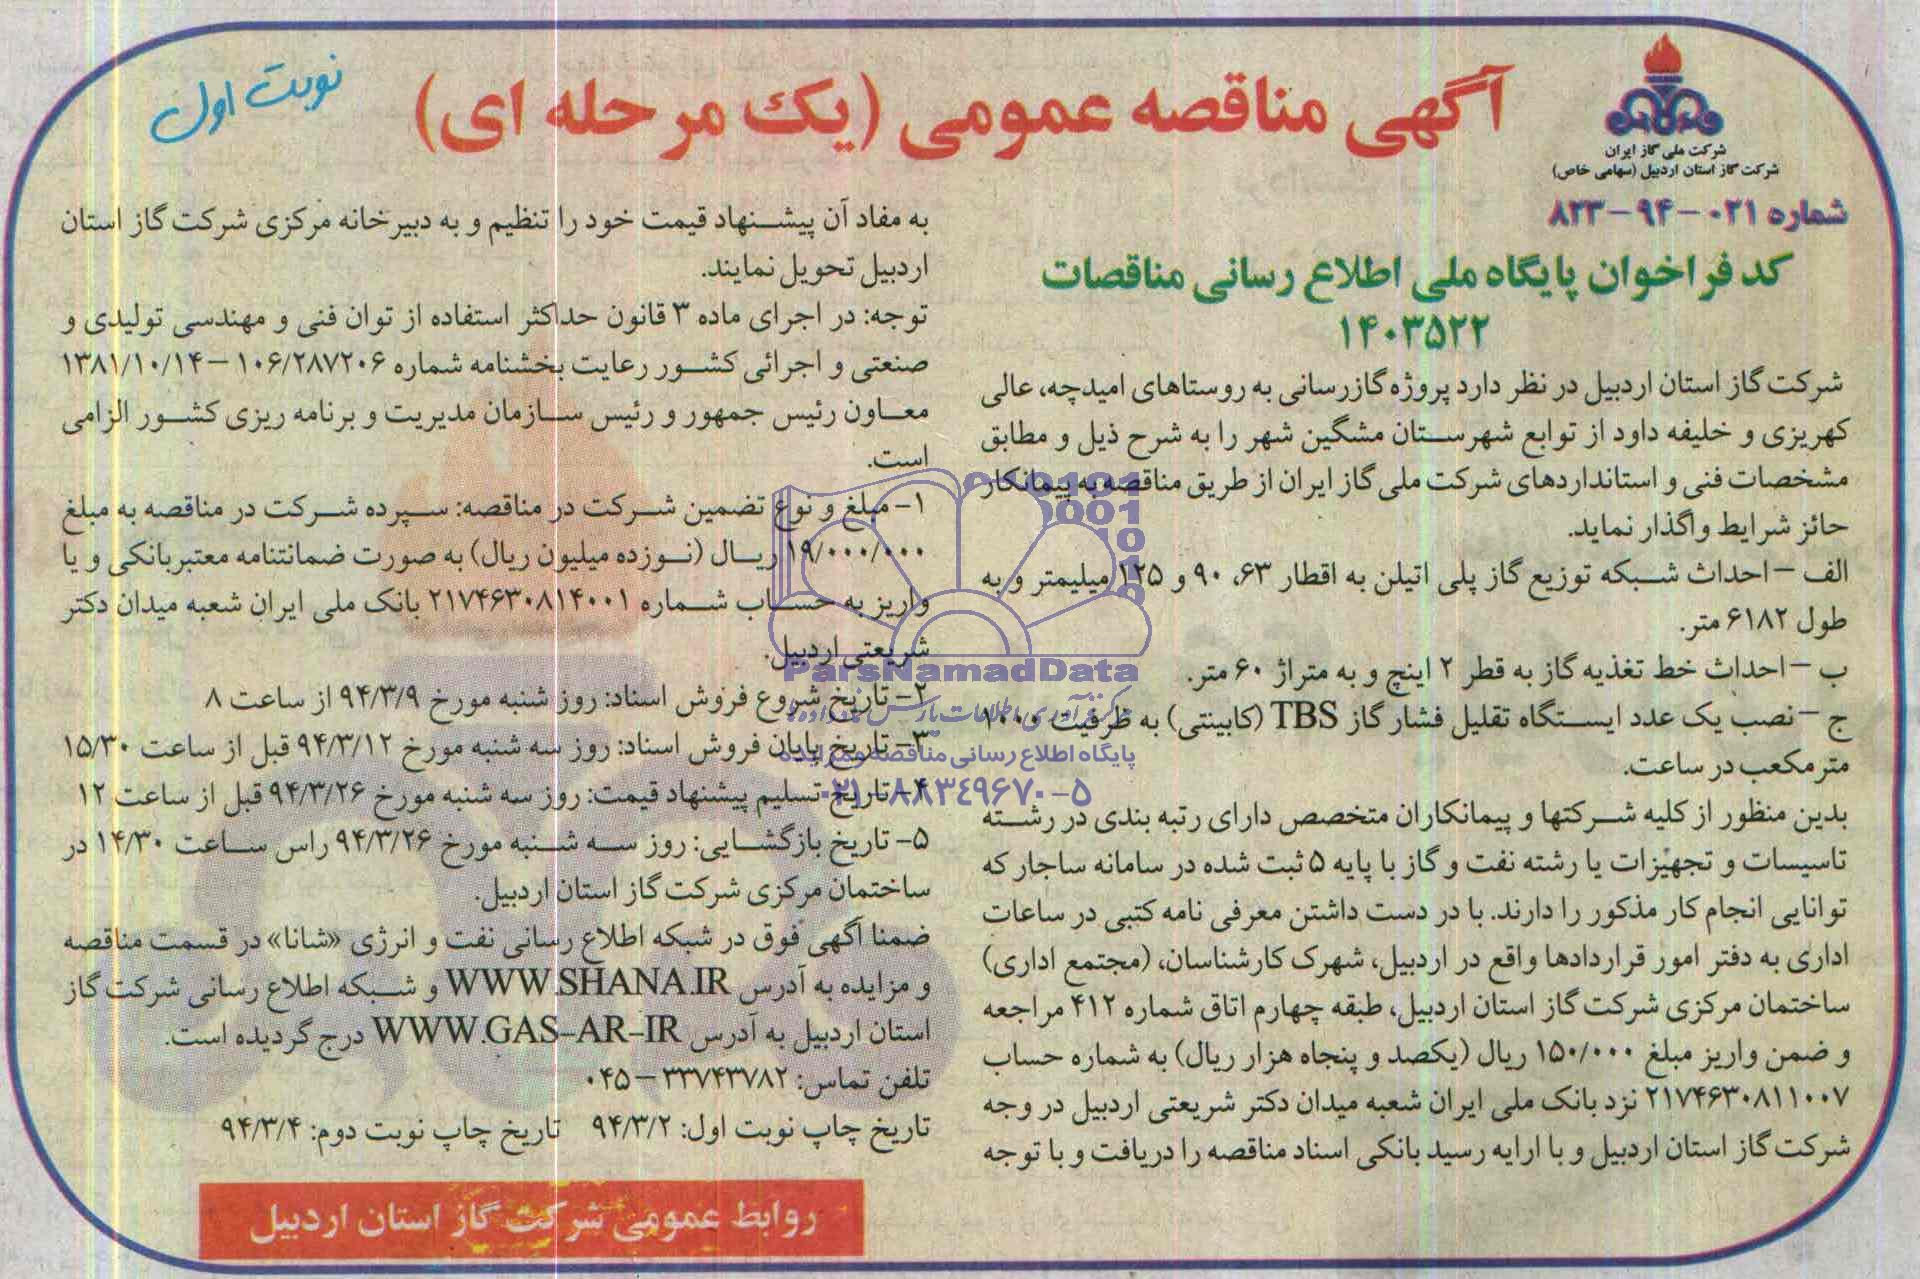 شرکت ملی گاز ایران
شرکت گاز استان اردبیل (سهامی خاص)
آگهی مناقصه عمومی (یک مرحله ای)
نوبت اول
شماره ۰۲۱-۹۴-۸۲۳
کد فراخوان پایگاه ملی اطلاع رسانی مناقصات
۱۴۰۳۵۲۲
شرکت گاز استان اردبیل در نظر دارد پروژه گازرسانی به روستاهای امیدچه، عالی
کهریزی و خلیفه داود از توابع شهرستان مشگین شهر را به شرح ذیل و مطابق
مشخصات فنی و استانداردهای شرکت ملی گاز ایران از طریق مناقصه به پیمانکار
حائز شرایط واگذار نماید.
الف – احداث شبکه توزیع گاز پلی اتیلن به اقطار ۶۳، ۹۰ و ۱۲۵ میلیمتر و به
طول ۶۱۸۲ متر.
ب – احداث خط تغذیه گاز به قطر ۲ اینچ و به متراژ ۶۰ متر.
ج – نصب یک عدد ایستگاه تقلیل فشار گاز TBS (کابینتی) به ظرفیت ۱۰۰۰
مترمکعب در ساعت.
بدین منظور از کلیه شرکتها و پیمانکاران متخصص دارای رتبه بندی در رشته
تاسیسات و تجهیزات یا رشته نفت و گاز با پایه ۵ ثبت شده در سامانه ساجار که
توانایی انجام کار مذکور را دارند. با در دست داشتن معرفی نامه کتبی در ساعات
اداری به دفتر امور قراردادها واقع در اردبیل، شهرک کارشناسان، (مجتمع اداری)
ساختمان مرکزی شرکت گاز استان اردبیل، طبقه چهارم اتاق شماره ۴۱۲ مراجعه
و ضمن واریز مبلغ ۱۵۰/۰۰۰ ریال (یکصد و پنجاه هزار ریال) به شماره حساب
۲۱۷۴۶۳۰۸۱۱۰۰۷ نزد بانک ملی ایران شعبه میدان دکتر شریعتی اردبیل در وجه
شرکت گاز استان اردبیل و با ارایه رسید بانکی اسناد مناقصه را دریافت و با توجه
به مفاد آن پیشنهاد قیمت خود را تنظیم و به دبیرخانه مرکزی شرکت گاز استان
اردبیل تحویل نمایند.
توجه: در اجرای ماده ۳ قانون حداکثر استفاده از توان فنی و مهندسی تولیدی و
صنعتی و اجرائی کشور رعایت بخشنامه شماره ۱۰۶/۲۸۷۲۰۶ – ۱۳۸۱/۱۰/۱۴
معاون رئیس جمهور و رئیس سازمان مدیریت و برنامه ریزی کشور الزامی
است.
۱- مبلغ و نوع تضمین شرکت در مناقصه: سپرده شرکت در مناقصه به مبلغ
۱۹/۰۰۰/۰۰۰ ریال (نوزده میلیون ریال) به صورت ضمانتنامه معتبربانکی و یا
واریز به حساب شماره ۲۱۷۴۶۳۰۸۱۴۰۰۱ بانک ملی ایران شعبه میدان دکتر
شریعتی اردبیل.
۲- تاریخ شروع فروش اسناد: روز شنبه مورخ ۹۴/۳/۹ از ساعت ۸
۳- تاریخ پایان فروش اسناد: روز سه شنبه مورخ ۹۴/۳/۱۲ قبل از ساعت ۱۵/۳۰
۴- تاریخ تسلیم پیشنهاد قیمت: روز سه شنبه مورخ ۹۴/۳/۲۶ قبل از ساعت ۱۲
۵- تاریخ بازگشایی: روز سه شنبه مورخ ۹۴/۳/۲۶ راس ساعت ۱۴/۳۰ در
ساختمان مرکزی شرکت گاز استان اردبیل.
ضمنا آگهی فوق در شبکه اطلاع رسانی نفت و انرژی «شانا» در قسمت مناقصه
و مزایده به آدرس WWW.SHANA.IR و شبکه اطلاع رسانی شرکت گاز
استان اردبیل به آدرس WWW.GAS-AR-IR درج گردیده است.
تلفن تماس: ۳۳۷۴۳۷۸۲ – ۰۴۵
تاریخ چاپ نوبت اول: ۹۴/۳/۲ تاریخ چاپ نوبت دوم: ۹۴/۳/۴
روابط عمومی شرکت گاز استان اردبیل
ParsNamadData
پایگاه اطلاع رسانی مناقصه و مزایده
۰۲۱-۸۸۳۴۹۶۷۰-۵